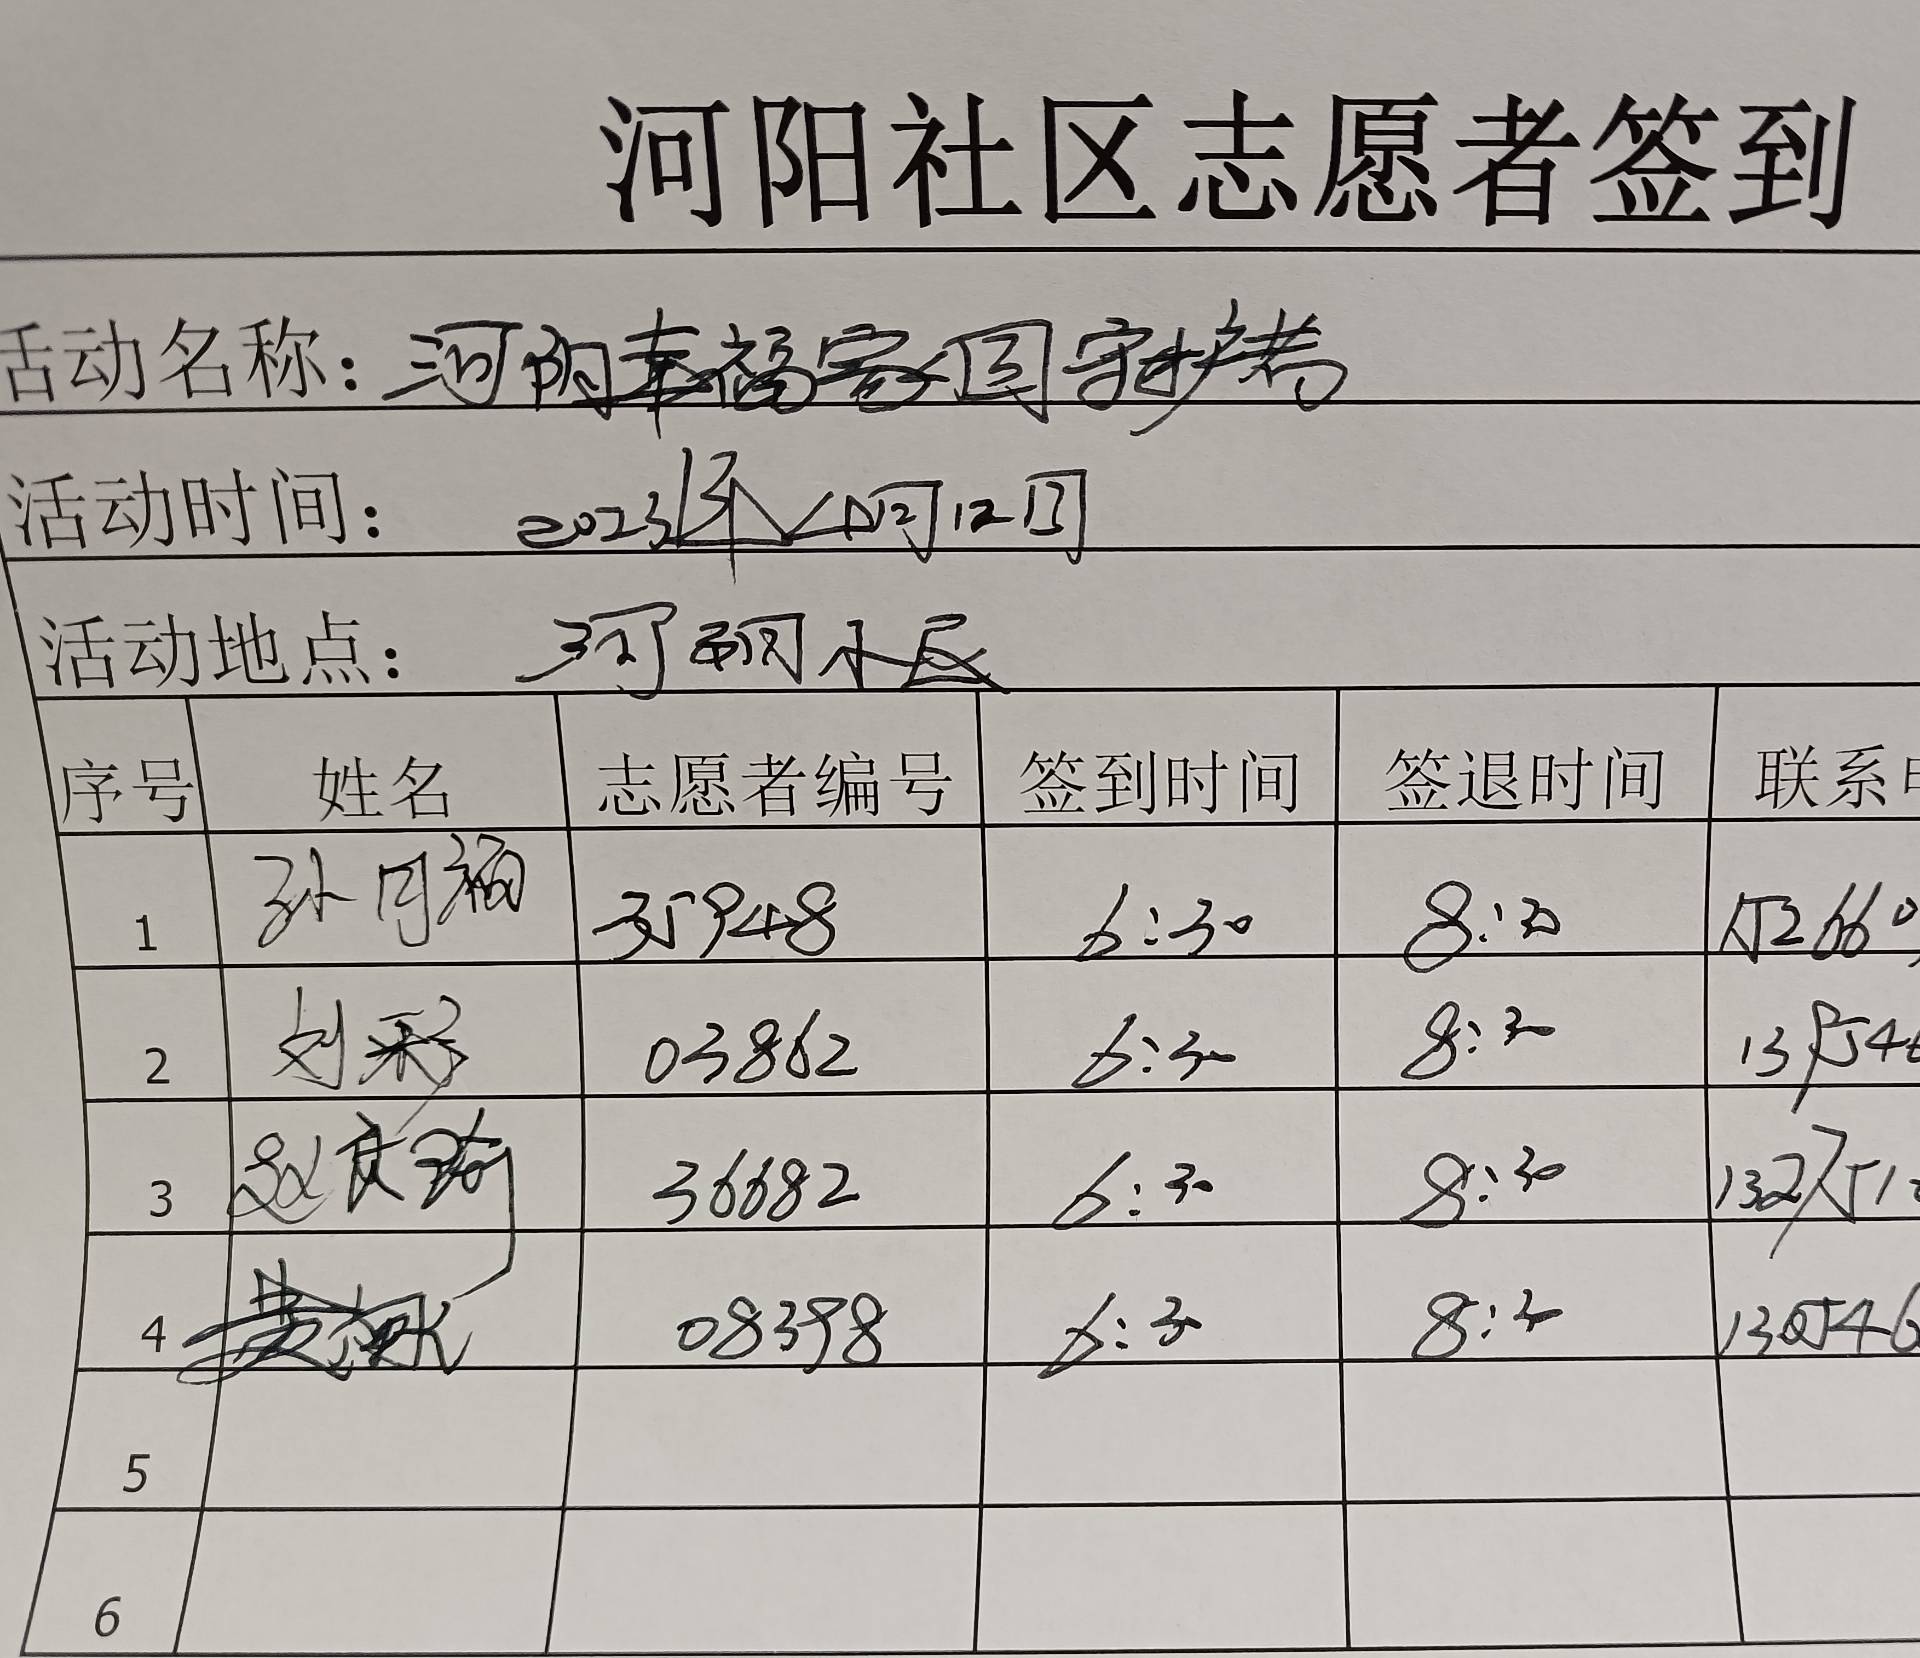 河阳社区志愿者签到
活动名称：河阴幸福家园守护者
活动时间：2023年4月12日
活动地点：河阴小区
序号 姓名 志愿者编号 签到时间 签退时间 联系
1 孙月福 35948 6:30 8:30 152660
2 刘彩 03862 6:30 8:30 13 546
3 赵 36682 6:30 8:30 132 51
4 黄 08398 6:30 8:30 130546
5
6